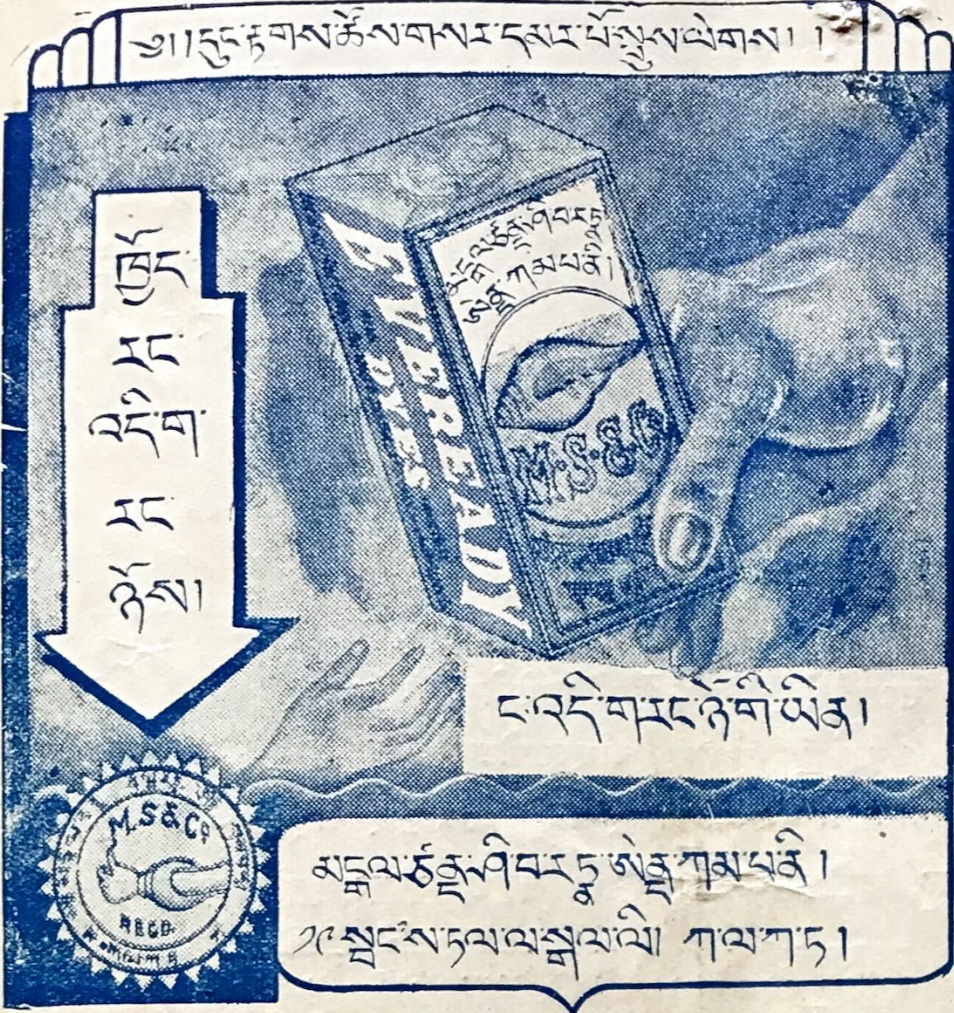 ༄༅།།དུང་རྟགས་ཚོས་གསར་དམར་པོ་སྤུས་ལེགས། །
ཁྱོད་
རང་
འདི་ག་
རང་
ཉོས།
EVEREADY
DYES
མངྒལ་ཙནྡ་ཤིབ་རཏྣ་
ཨེནྜ་ཀམ་པནི།
M.S.&Co
ང་འདི་ག་རང་ཉོ་གི་ཡིན།
M.S&Co
REGD.
མངྒལ་ཙནྡ་ཤིབ་རཏྣ་ཨེནྜ་ཀམ་པནི།
༡༩ སྦང་ས་ཏལ་ལ་སྒལ་ལི། ཀ་ལ་ཀ་ཏ།